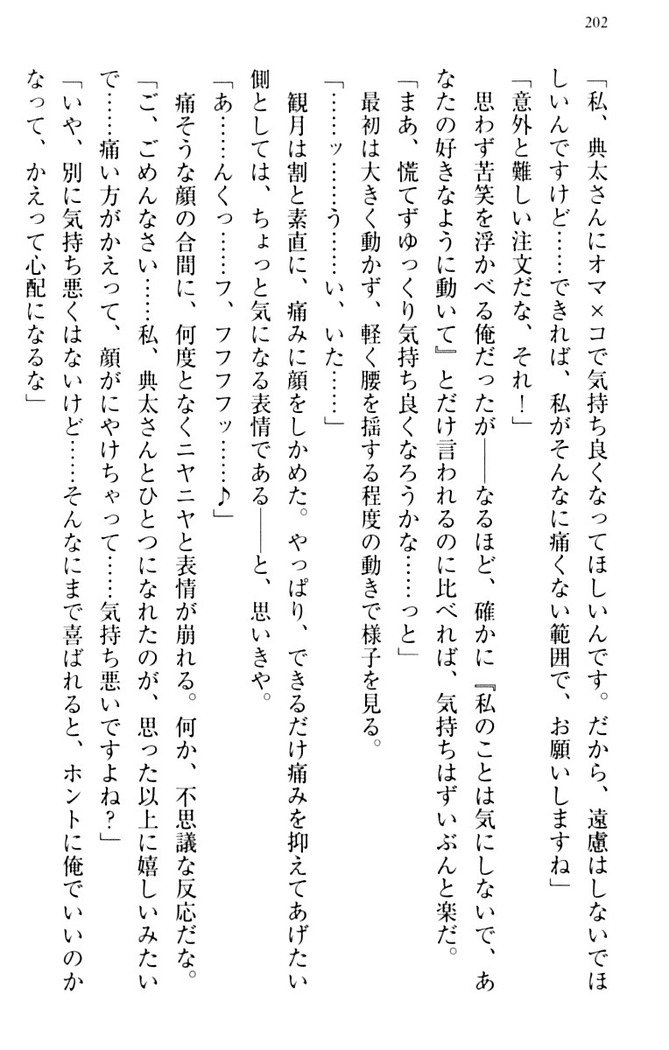 202
「私、典太さんにオマ×コで気持ち良くなってほしいんです。だから、遠慮はしないでほ
しいんですけど……できれば、私がそんなに痛くない範囲で、お願いしますね」
「意外と難しい注文だな、それ！」
思わず苦笑を浮かべる俺だったが――なるほど、確かに『私のことは気にしないで、あ
なたの好きなように動いて』とだけ言われるのに比べれば、気持ちはずいぶんと楽だ。
「まあ、慌てずゆっくり気持ち良くなろうかな……っと」
最初は大きく動かず、軽く腰を揺する程度の動きで様子を見る。
「……ッ……う……い、いた……」
観月は割と素直に、痛みに顔をしかめた。やっぱり、できるだけ痛みを抑えてあげたい
側としては、ちょっと気になる表情である――と、思いきや。
「あ……んくっ……フ、フフフフッ……♪」
痛そうな顔の合間に、何度となくニヤニヤと表情が崩れる。何か、不思議な反応だな。
「ご、ごめんなさい……私、典太さんとひとつになれたのが、思った以上に嬉しいみたい
で……痛い方がかえって、顔がにやけちゃって……気持ち悪いですよね？」
「いや、別に気持ち悪くはないけど……そんなにまで喜ばれると、ホントに俺でいいのか
なって、かえって心配になるな」